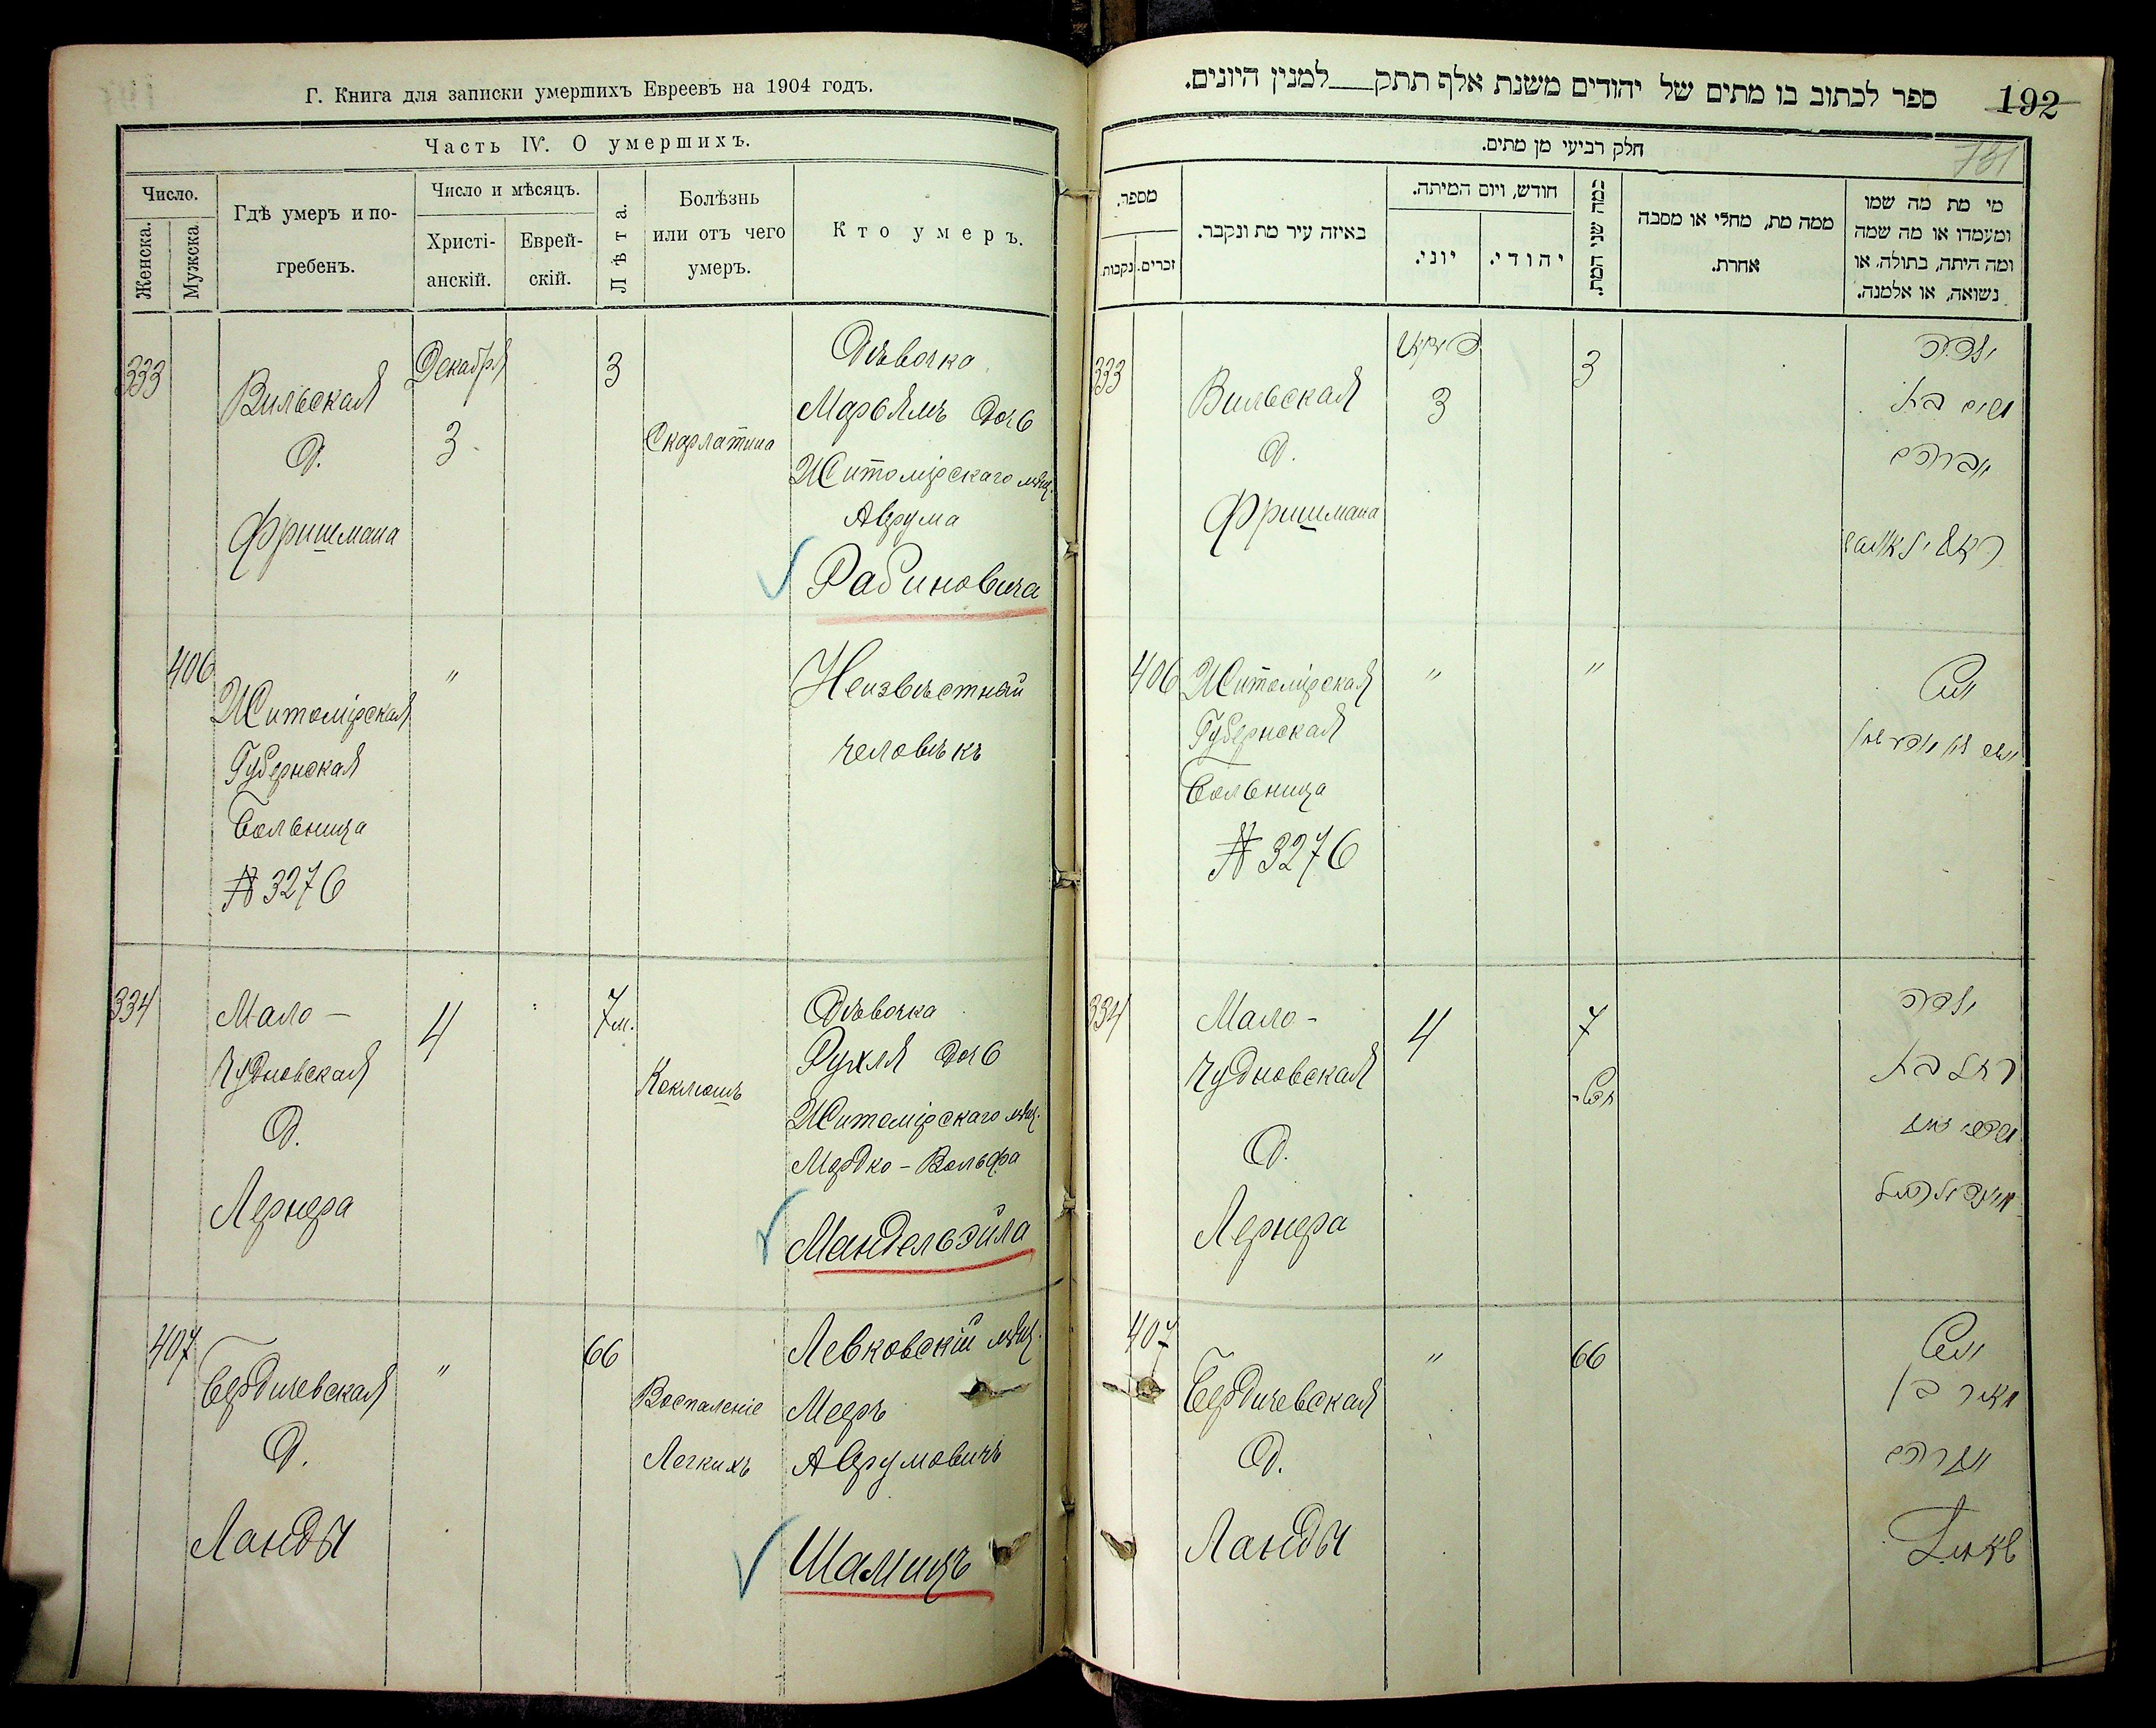 Г. Книга для записки умершихъ Евреевъ на 1904 годъ.
Часть IV. О умершихъ.
Число.
Женска.
Мужска.
Гдѣ умеръ и по-
гребенъ.
Число и мѣсяцъ.
Христі-
анскій.
Еврей-
скій.
Лѣта.
Болѣзнь
или отъ чего
умеръ.
Кто умеръ.
333
Вильская
д.
Фришмана
Декабря
3
3
Скарлатина
Дѣвочка
Марьямъ дочь
Житомірскаго мѣщ.
Аврума
Рабиновича
406
Житомірская
Губернская
Больница
№ 3276
"
Неизвѣстный
человѣкъ
334
Мало-
Чудновская
д.
Лернера
4
7 м.
Коклюшъ
Дѣвочка
Рухля дочь
Житомірскаго мѣщ.
Мордко-Вольфа
Мандельэйла
407
Бердичевская
д.
Ланды
"
66
Воспаленіе
Легкихъ
Левковскій мѣщ.
Мееръ
Аврумовичъ
Шамицъ
ספר לכתוב בו מתים של יהודים משנת אלף תתק___למנין היונים.
192
חלק רביעי מן מתים.
מספר.
נקבות.
זכרים.
באיזה עיר מת ונקבר.
חודש, ויום המיתה.
יוני.
יהודי.
כמה שני המת.
ממה מת, מחלי או מסבה
אחרת.
מי מת מה שמו
ומעמדו או מה שמה
ומה היתה, בתולה, או
נשואה, או אלמנה.
333
Вильская
д.
Фришмана
3
3
ילדה
מרים בת
אברהם
406
Житомірская
Губернская
Больница
№ 3276
"
"
איש
334
Мало-
Чудновская
д.
Лернера
4
7
חד'
ילדה
רחל בת
407
Бердичевская
д.
Ланды
"
66
איש
מאיר בן
אברהם